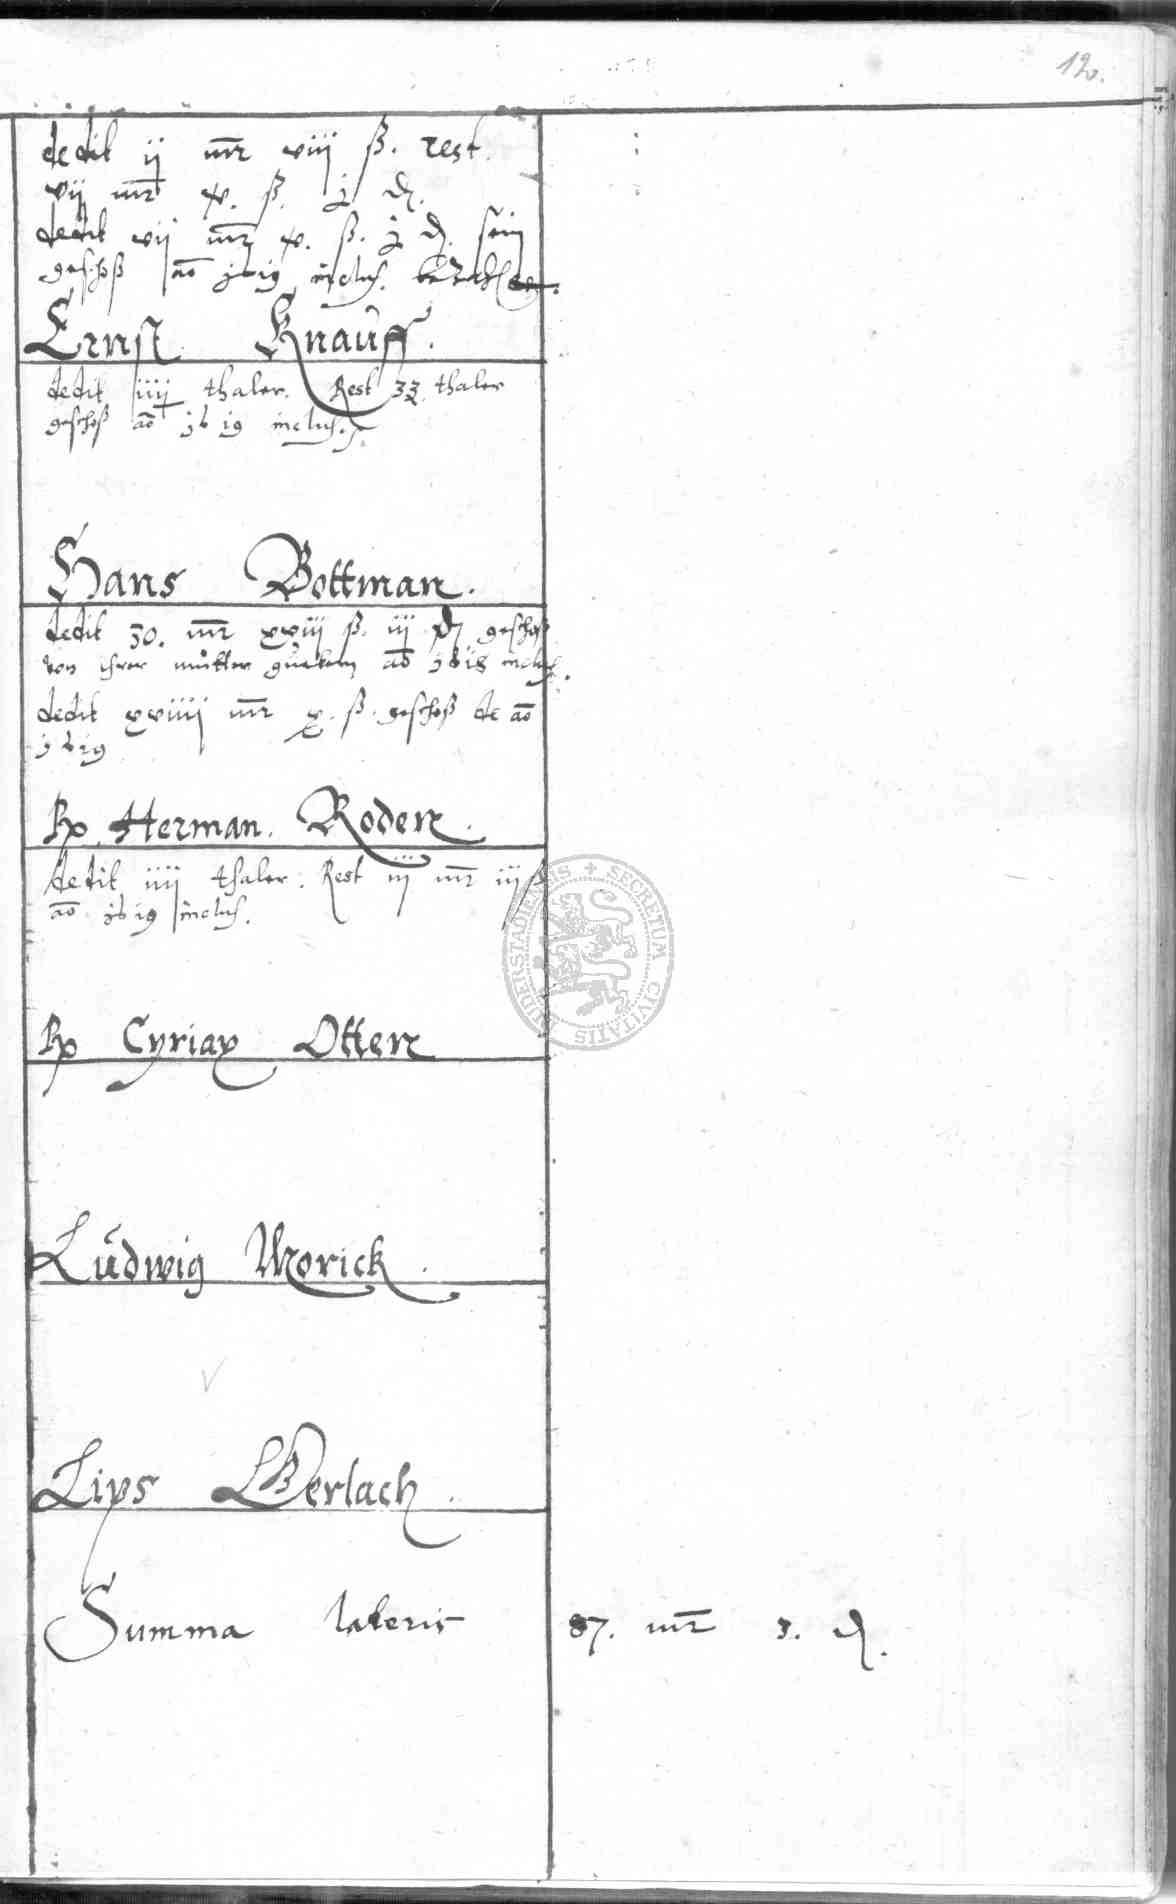 120.
dedit ij mr viij ß. rest
vij mr x. ß. j ₰.
dedit vij mr x. ß. j ₰. sein
geschoß ao 1619 inclus. bezahlet.
Ernst Knauff.
dedit iiij thaler. Rest 33 thaler
geschoß ao 1619 inclus.
Hans Bottman.
dedit 30. mr xxiij ß. iij ₰ geschoß
von ihrer mutter ao 1618 inclus.
dedit xxiiij mr x. ß. geschoß de ao
1619
Rx Herman. Roden.
dedit iiij thaler. Rest iij mr iij ß
ao 1619 inclus.
SECRETUM CIVITATIS DUDERSTADIENSIS
Rx Cyriax Otten
Ludwig Morick.
Lips Gerlach.
Summa lateris 87. mr 3. ₰.